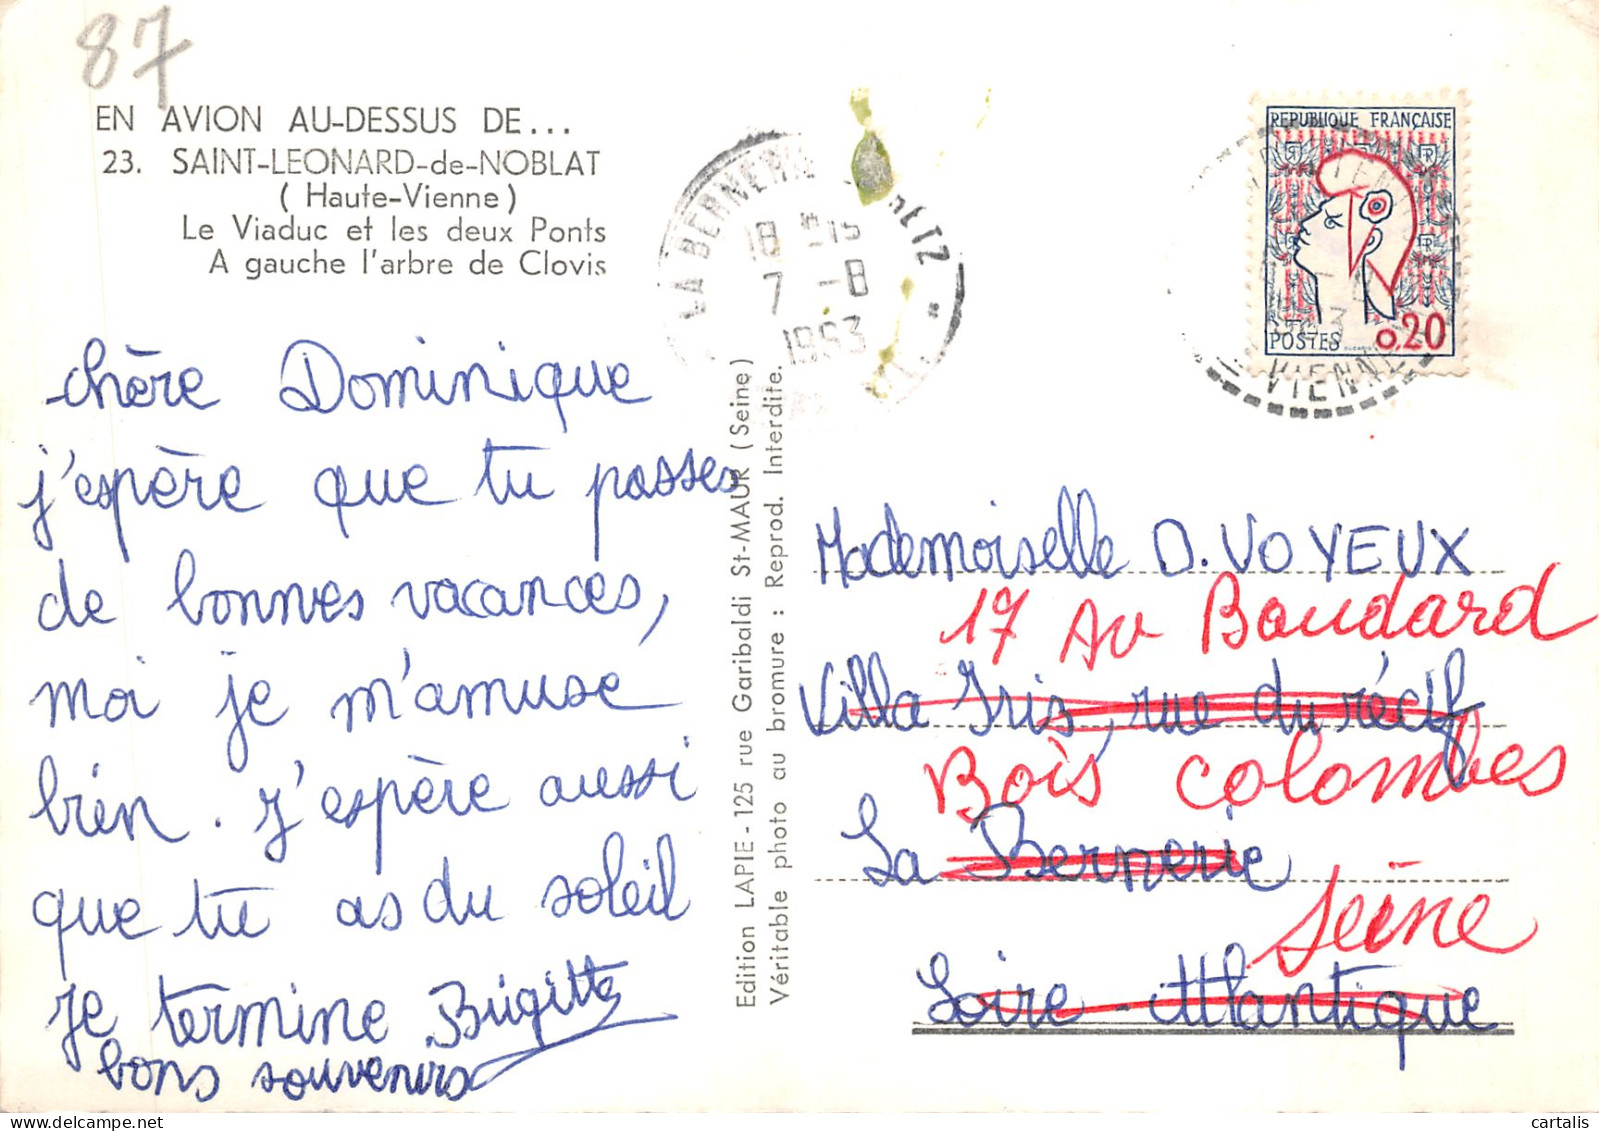 87
EN AVION AU-DESSUS DE...
23. SAINT-LEONARD-de-NOBLAT
(Haute-Vienne)
Le Viaduc et les deux Ponts
A gauche l'arbre de Clovis
chère Dominique
j'espère que tu passes
de bonnes vacances,
moi je m'amuse
bien. J'espère aussi
que tu as du soleil
je termine Brigitte
bons souvenirs
Edition LAPIE - 125 rue Garibaldi St-MAUR (Seine)
Véritable photo au bromure : Reprod. Interdite.
LA BERNERIE ETZ
18 H15
7 -8
1963
REPUBLIQUE FRANÇAISE
POSTES 0,20
VIENNE
Mademoiselle D. VOYEUX
17 Av Boudard
Villa Iris, rue du récif
Bois colombes
La Bernerie
Seine
Loire-Atlantique
cartalis